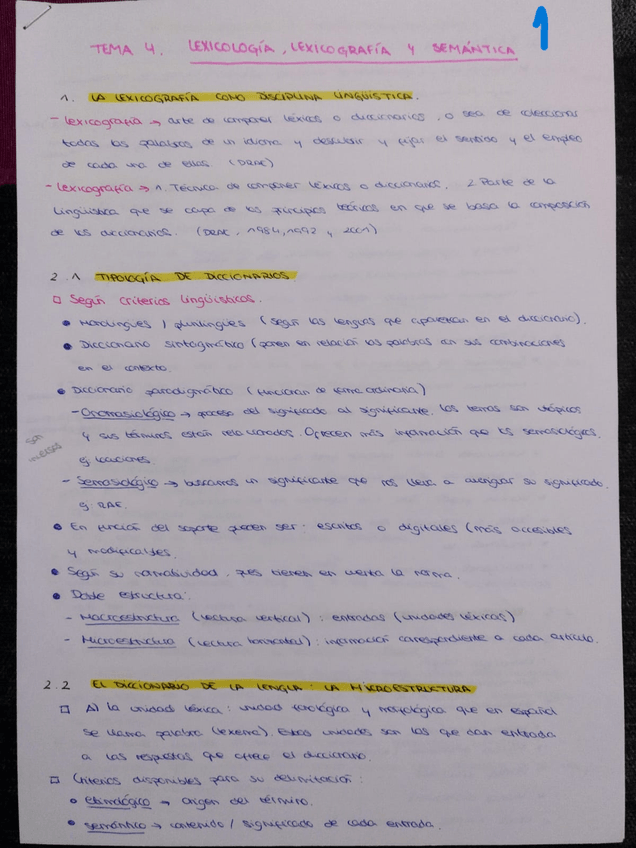 1
TEMA 4. LEXICOLOGÍA, LEXICOGRAFÍA Y SEMÁNTICA
1. LA LEXICOGRAFÍA COMO DISCIPLINA LINGÜÍSTICA.
- Lexicografía → arte de componer léxicos o diccionarios, o sea de coleccionar
todas las palabras de un idioma y descubrir y fijar el sentido y el empleo
de cada una de ellas (DRAE)
- Lexicografía → 1. Técnica de componer léxicos o diccionarios. 2. Parte de la
lingüística que se ocupa de los principios teóricos en que se basa la composición
de los diccionarios. (DRAE, 1984, 1992 y 2001)
2.1 TIPOLOGÍA DE DICCIONARIOS.
□ Según criterios lingüísticos.
• Monolingües / plurilingües (según las lenguas que aparezcan en el diccionario).
• Diccionario sintagmático (ponen en relación las palabras con sus combinaciones
en el contexto.
• Diccionario paradigmático (funcionan de forma ordinaria)
- Onomasiológico → proceso del significado al significante. Los temas son utópicos
y sus términos están relacionados. Ofrecen más información que los semasiológicos.
ej: locuciones.
son inversos
- Semasiológico → buscamos un significante que nos lleva a averiguar su significado.
ej: RAE.
• En función del soporte pueden ser: escritos o digitales (más accesibles
y modificables.
• Según su normatividad, pues tienen en cuenta la norma.
• Doble estructura:
- Macroestructura (lectura vertical): entradas (unidades léxicas)
- Microestructura (lectura horizontal): información correspondiente a cada artículo.
2.2 EL DICCIONARIO DE LA LENGUA: LA MICROESTRUCTURA
□ A) La unidad léxica: unidad fonológica y morfológica que en español
se llama palabra (lexema). Estas unidades son las que dan entrada
a las respuestas que ofrece el diccionario.
□ Criterios disponibles para su delimitación:
• etimológico → origen del término.
• semántico → contenido / significado de cada entrada.